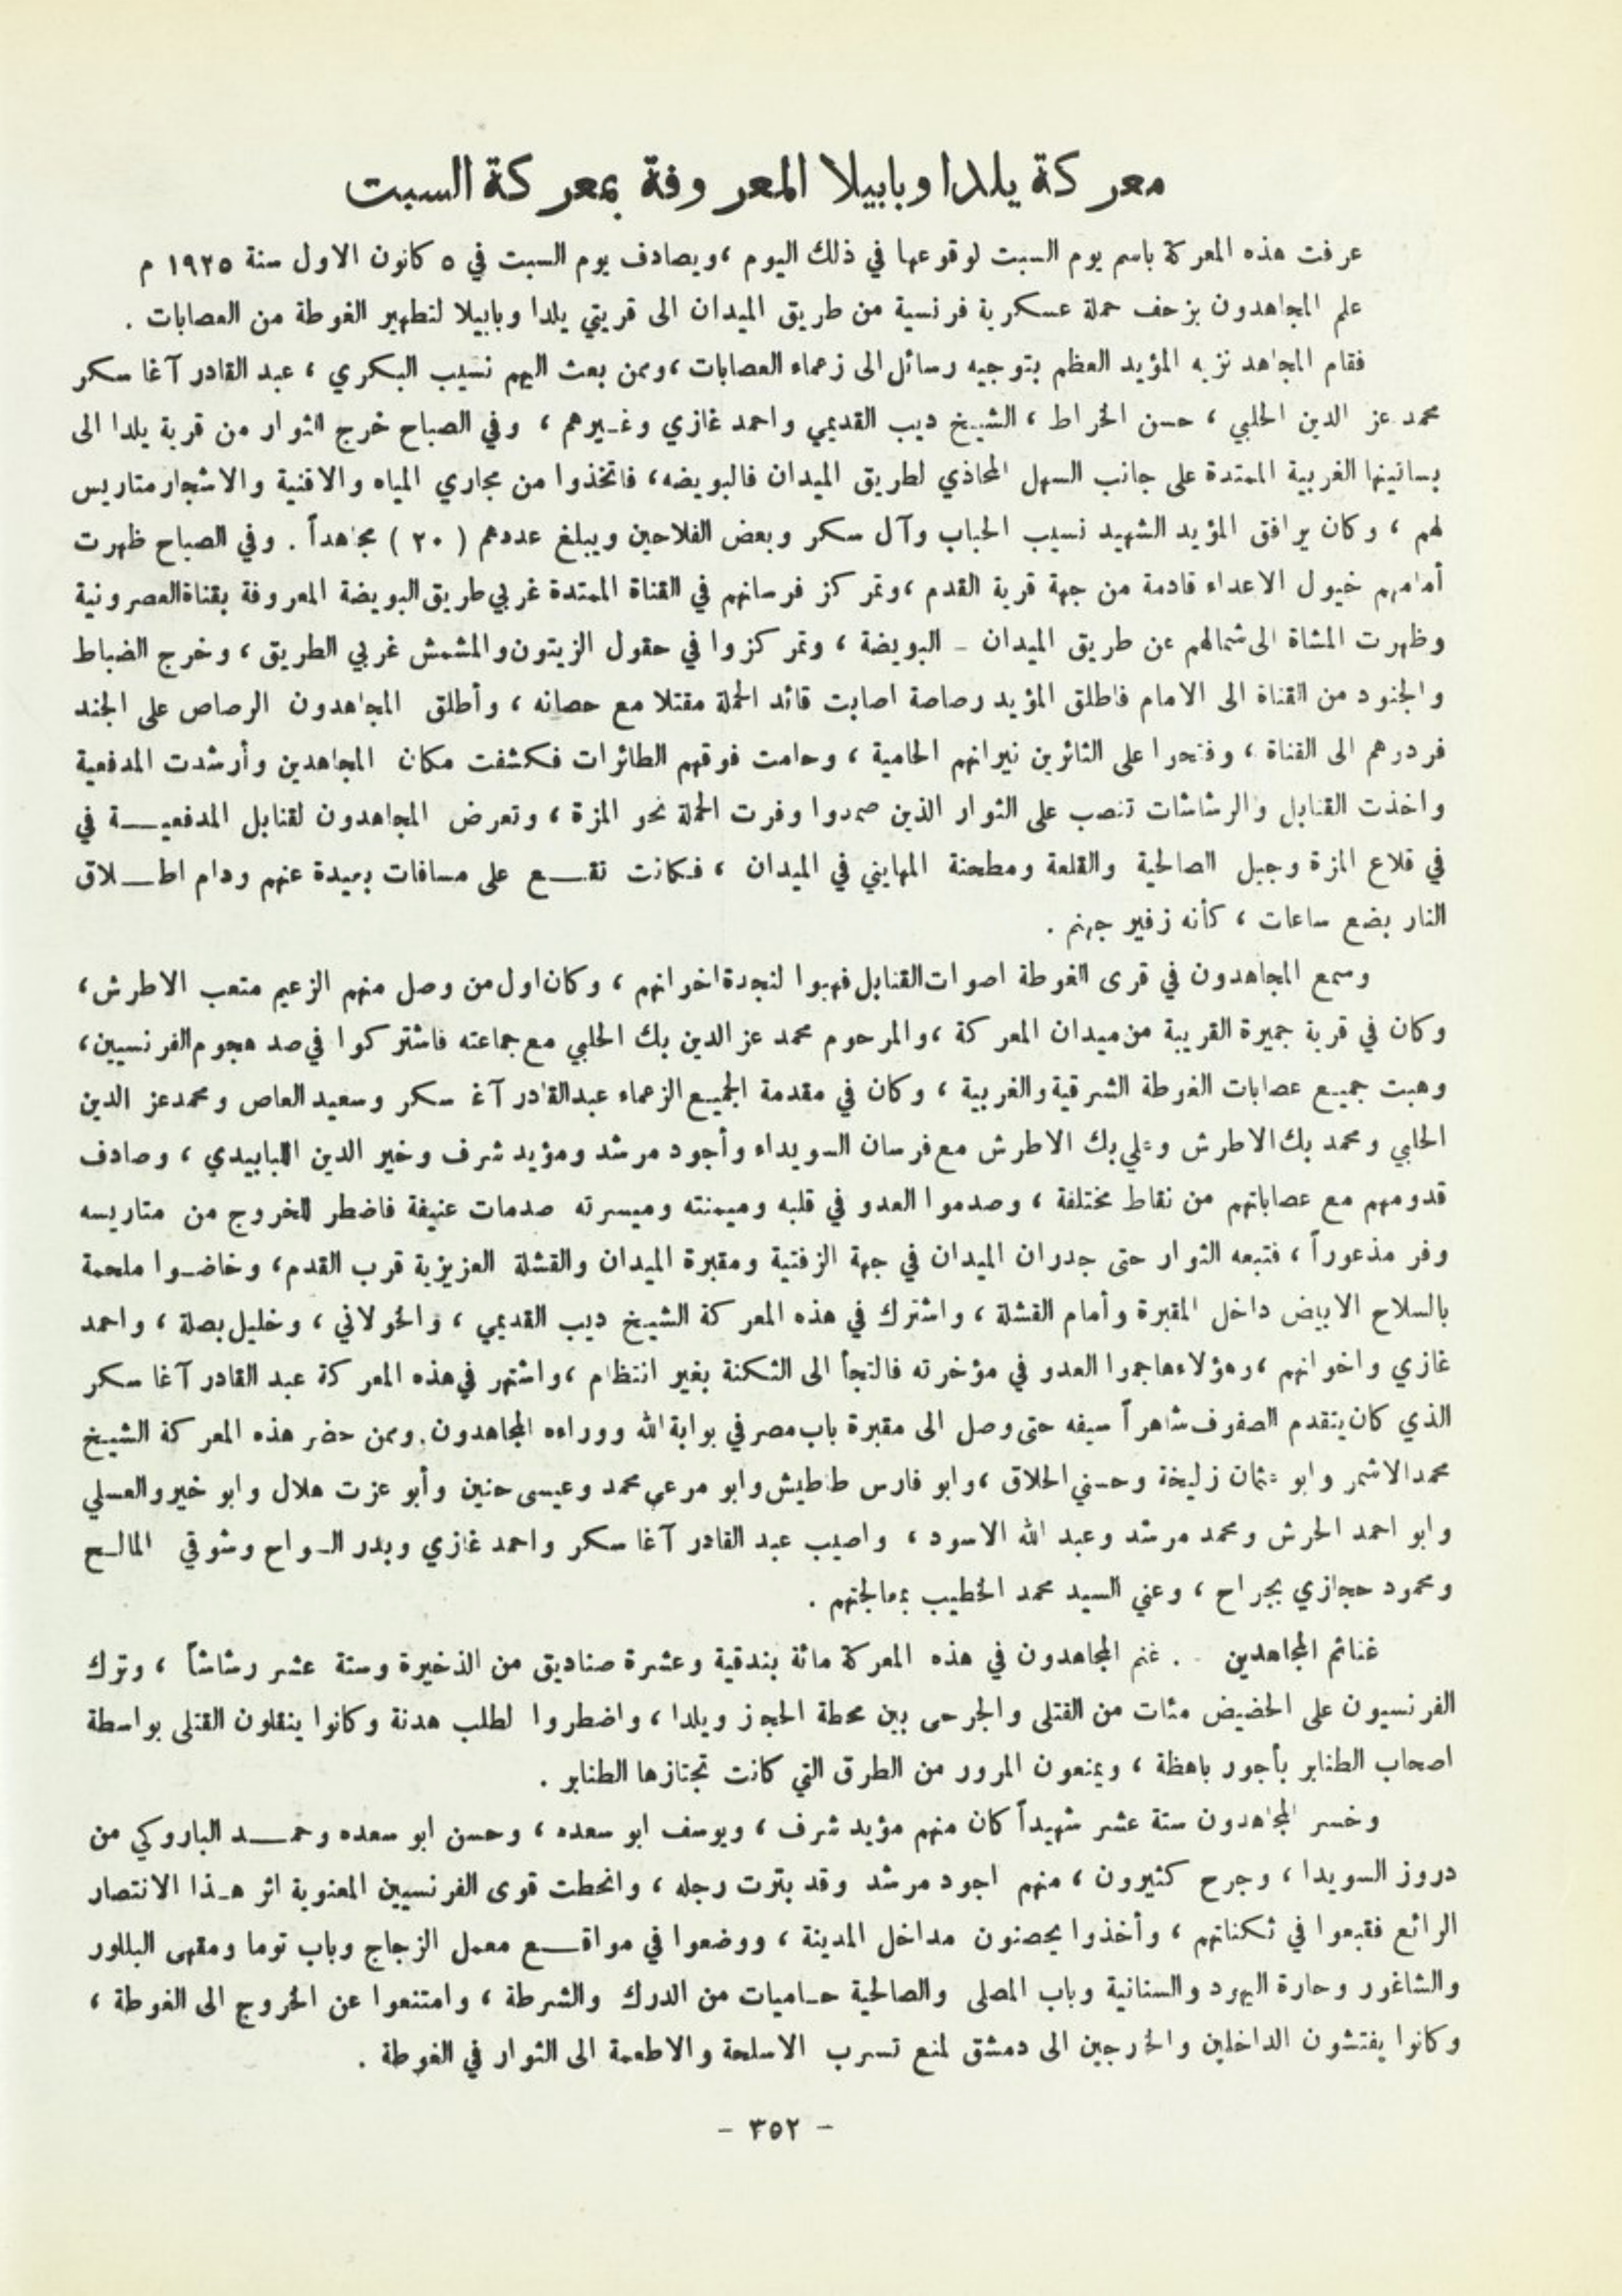 معركة يلدا وبابيلا المعروفة بمعركة السبت
عرفت هذه المعركة باسم يوم السبت لوقوعها في ذلك اليوم ، ويصادف يوم السبت في ٥ كانون الاول سنة ١٩٢٥ م
علم المجاهدون بزحف حملة عسكرية فرنسية من طريق الميدان الى قريتي يلدا وبابيلا لتطهير الغوطة من العصابات .
فقام المجاهد نزيه المؤيد العظم بتوجيه رسائل الى زعماء العصابات ، وممن بعث اليهم نسيب البكري ، عبد القادر آغا سكر
محمد عز الدين الحلبي ، حسن الخراط ، الشيخ ديب القديمي واحمد غازي وغيرهم ، وفي الصباح خرج الثوار من قرية يلدا الى
بساتينها الغربية الممتدة على جانب السهل المحاذي لطريق الميدان فالبويضه ، فاتخذوا من مجاري المياه والاقنية والاشجار متاريس
لهم ، وكان يرافق المؤيد الشهيد نسيب الحباب وآل سكر وبعض الفلاحين ويبلغ عددهم ( ٢٠ ) مجاهداً . وفي الصباح ظهرت
أمامهم خيول الاعداء قادمة من جهة قرية القدم ، وتمركز فرسانهم في القناة الممتدة غربي طريق البويضة المعروفة بقناة العصرونية
وظهرت المشاة الى شمالهم عن طريق الميدان - البويضة ، وتمركزوا في حقول الزيتون والمشمش غربي الطريق ، وخرج الضباط
والجنود من القناة الى الامام فاطلق المؤيد رصاصة اصابت قائد الحملة مقتلا مع حصانه ، وأطلق المجاهدون الرصاص على الجند
فردوهم الى القناة ، وفتحوا على الثائرين نيرانهم الحامية ، وحامت فوقهم الطائرات فكشفت مكان المجاهدين وأرشدت المدفعية
واخذت القنابل والرشاشات تنصب على الثوار الذين صمدوا وفرت الحملة نحو المزة ، وتعرض المجاهدون لقنابل المدفعيـــة في
في قلاع المزة وجبل الصالحية والقلعة ومطحنة المهايني في الميدان ، فكانت تقـــع على مسافات بعيدة عنهم ودام اطـــلاق
النار بضع ساعات ، كأنه زفير جهنم .
وسمع المجاهدون في قرى الغوطة اصوات القنابل فهبوا لنجدة اخوانهم ، وكان اول من وصل منهم الزعيم متعب الاطرش ،
وكان في قرية جميرة القريبة من ميدان المعركة ، والمرحوم محمد عز الدين بك الحلبي مع جماعته فاشتركوا في صد هجوم الفرنسيين ،
وهبت جميع عصابات الغوطة الشرقية والغربية ، وكان في مقدمة الجميع الزعماء عبد القادر آغا سكر وسعيد العاص ومحمد عز الدين
الحلبي ومحمد بك الاطرش وعلي بك الاطرش مع فرسان السويداء وأجود مرشد ومؤيد شرف وخير الدين اللبابيدي ، وصادف
قدومهم مع عصاباتهم من نقاط مختلفة ، وصدموا العدو في قلبه وميمنته وميسرته صدمات عنيفة فاضطر للخروج من متاريسه
وفر مذعوراً ، فتبعه الثوار حتى جدران الميدان في جهة الزفتية ومقبرة الميدان والقشلة العزيزية قرب القدم ، وخاضوا ملحمة
بالسلاح الابيض داخل المقبرة وأمام القشلة ، واشترك في هذه المعركة الشيخ ديب القديمي ، والخولاني ، وخليل بصلة ، واحمد
غازي واخوانهم ، وهؤلاء هاجموا العدو في مؤخرته فالتجأ الى الثكنة بغير انتظام ، واشتهر في هذه المعركة عبد القادر آغا سكر
الذي كان يتقدم الصفوف شاهراً سيفه حتى وصل الى مقبرة باب مصر في بوابة الله ووراءه المجاهدون . وممن حضر هذه المعركة الشيخ
محمد الاشمر وابو عثمان زليخة وحسني الحلاق ، وابو فارس طاطيش وابو مرعي محمد وعيسى حنين وأبو عزت هلال وابو خيرو العسلي
وابو احمد الحرش ومحمد مرشد وعبد الله الاسود ، واصيب عبد القادر آغا سكر واحمد غازي وبدر السواح وشوقي المالح
ومحمود حجازي بجراح ، وعني السيد محمد الخطيب بمعالجتهم .
غنائم المجاهدين . غنم المجاهدون في هذه المعركة مائة بندقية وعشرة صناديق من الذخيرة وستة عشر رشاشاً ، وترك
الفرنسيون على الحضيض مئات من القتلى والجرحى بين محطة الحجز ويلدا ، واضطروا لطلب هدنة وكانوا ينقلون القتلى بواسطة
اصحاب الطنابر بأجور باهظة ، ويمنعون المرور من الطرق التي كانت تجتازها الطنابر .
وخسر المجاهدون ستة عشر شهيداً كان منهم مؤيد شرف ، ويوسف ابو سعده ، وحسن ابو سعده وحمـــد الباروكي من
دروز السويدا ، وجرح كثيرون ، منهم اجود مرشد وقد بترت رجله ، وانحطت قوى الفرنسيين المعنوية اثر هـذا الانتصار
الرائع فقبعوا في ثكناتهم ، وأخذوا يحصنون مداخل المدينة ، ووضعوا في مواقـــع معمل الزجاج وباب توما ومقهى البللور
والشاغور وحارة اليهود والسنانية وباب المصلى والصالحية حـاميات من الدرك والشرطة ، وامتنعوا عن الخروج الى الغوطة ،
وكانوا يفتشون الداخلين والخارجين الى دمشق لمنع تسرب الاسلحة والاطعمة الى الثوار في الغوطة .
- ٣٥٢ -